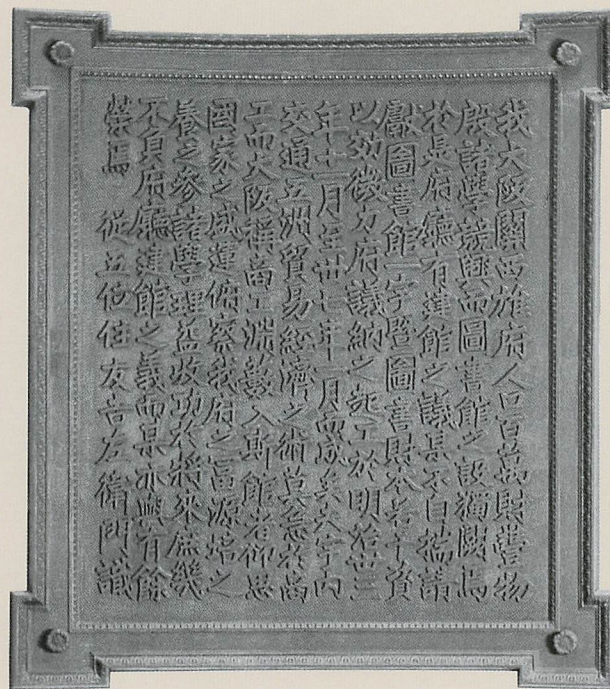 我大阪關西雄府人口百萬財豐物
殷諸學競興而圖書館之設獨闕焉
於是府廳有建館之議某不自揣請
獻圖書館一宇暨圖書財本若干資
以効微力府議納之起工於明治卅三
年十一月至卅七年一月而成矣夫宇内
交通五洲貿易經濟之術莫急於商
工而大阪稱商工淵藪入斯館者仰思
國家之盛運俯察我府之富源培之
養之參諸學理益收功於將來庶幾
不負府廳建館之義而某亦與有餘
榮焉　從五位住友吉左衛門識